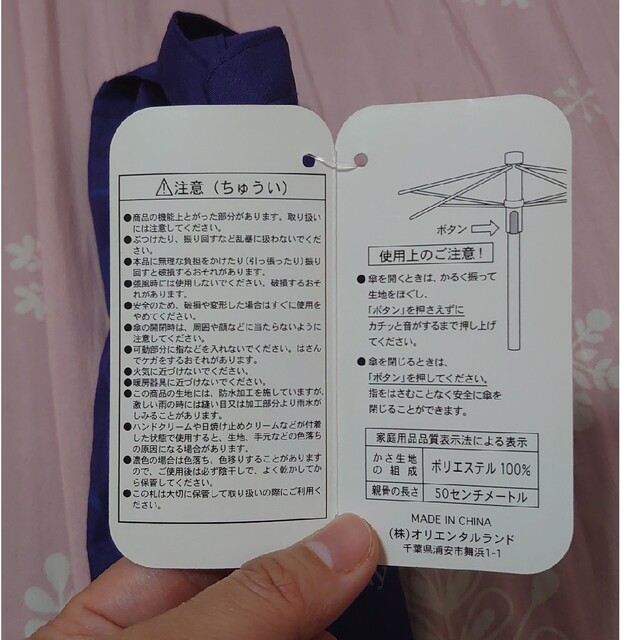 ⚠注意（ちゅうい）
●商品の機能上とがった部分があります。取り扱い
には注意してください。
●ぶつけたり、振り回すなど乱暴に扱わないでくだ
さい。
●本品に無理な負担をかけたり（引っ張ったり）振り
回すと破損するおそれがあります。
●強風時には使用しないでください、破損するおそ
れがあります。
●安全のため、破損や変形した場合はすぐに使用を
やめてください。
●傘の開閉時は、周囲や顔などに当たらないように
注意してください。
●可動部分に指などを入れないでください。はさん
でケガをするおそれがあります。
●火気に近づけないでください。
●暖房器具に近づけないでください。
●この商品の生地には、防水加工を施していますが、
激しい雨の時には縫い目又は加工部分より雨水が
しみることがあります。
●ハンドクリームや日焼け止めクリームなどが付着
した状態で使用すると、生地、手元などの色落ち
の原因になる場合があります。
●濃色の場合は色落ち、色移りすることがあります
ので、ご使用後は必ず陰干しで、よく乾かしてか
ら保管してください。
●この札は大切に保管して取り扱いの際にご利用く
ださい。
ボタン
使用上のご注意！
●傘を開くときは、かるく振って
生地をほぐし、
「ボタン」を押さえずに
カチッと音がするまで押し上げ
てください。
●傘を閉じるときは、
「ボタン」を押してください。
指をはさむことなく安全に傘を
閉じることができます。
家庭用品品質表示法による表示
かさ生地の組成 ポリエステル100%
親骨の長さ 50センチメートル
MADE IN CHINA
(株)オリエンタルランド
千葉県浦安市舞浜1-1